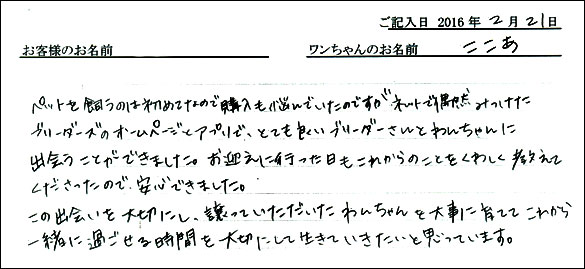 ご記入日 2016 年 2 月 21 日
お客様のお名前 ワンちゃんのお名前 ここあ
ペットを飼うのは初めてなので購入も悩んでいたのですがネットで偶然みつけた
ブリーダーズのホームページとアプリで、とても良いブリーダーさんとわんちゃんに
出会うことができました。お迎えに行った日もこれからのことをくわしく教えて
くださったので、安心できました。
この出会いを大切にし、譲っていただいたわんちゃんを大事に育ててこれから
一緒に過ごせる時間を大切にして生きていきたいと思っています。